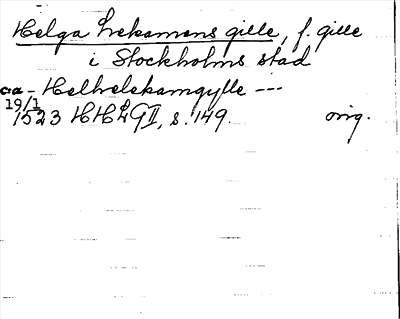 Helga Lekamens gille, f. gille
i Stockholms stad
aa - Helhelekamgylle ---
19/1
1523 HHLGII, s. 149. orig.